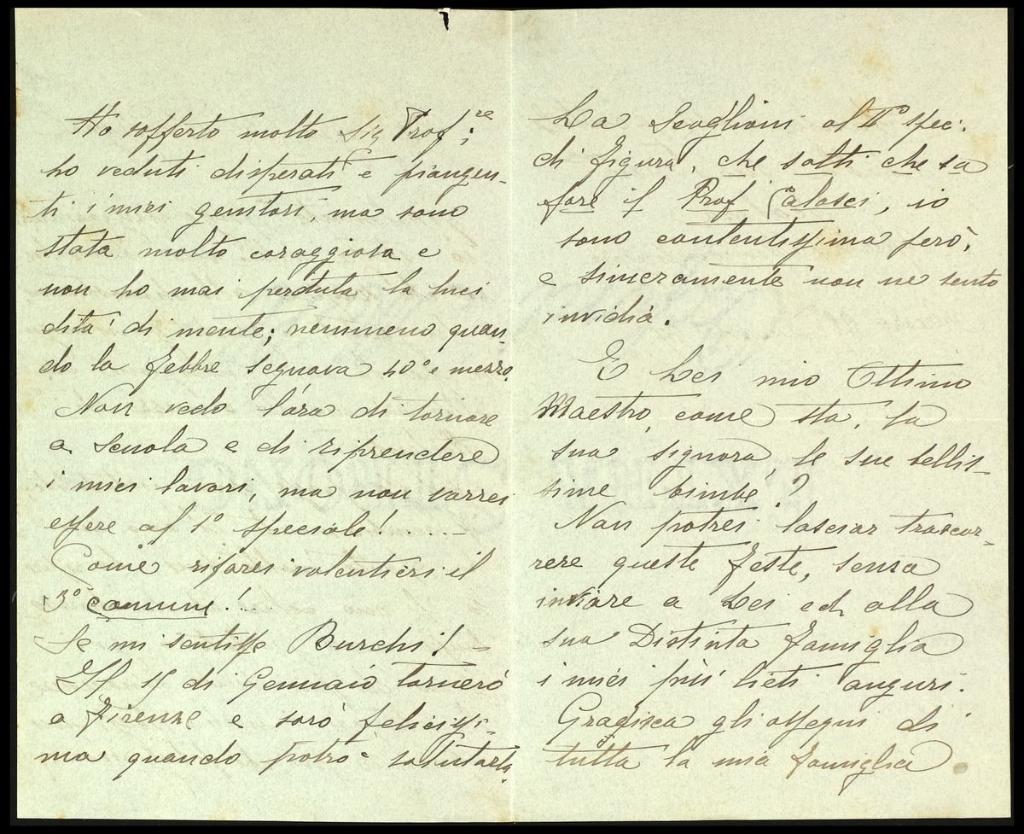 Ho sofferto molto Sig. Prof.re;
ho veduti disperati e piangen-
ti i miei genitori, ma sono
stata molto coraggiosa e
non ho mai perduta la luci
dità di mente; nemmeno quan-
do la febbre segnava 40° e mezzo.
Non vedo l'ora di tornare
a scuola e di riprendere
i miei lavori, ma non vorrei
essere al 1° speciale! . . . .
Come rifarei volentieri il
3° comune!..
Se mi sentisse Burchi! -
Il 15 di Gennaio tornerò
a Firenze e sarò felicissi-
ma quando potrò salutarla.
La Scaglioni al II° spec.
di figura, che salti che sa
fare il Prof Calosci, io
sono contentissima però,
e sinceramente non ne sento
invidia.
E Lei mio Ottimo
Maestro, come sta, la
sua signora, le sue bellis-
sime bimbe?
Non potrei lasciar trascor-
rere queste feste, senza
inviare a Lei ed alla
sua Distinta famiglia
i miei più lieti auguri.
Gradisca gli ossequi di
tutta la mia famiglia